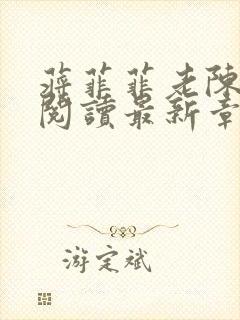 蔣菲菲老陳
閱讀最新章
游定斌